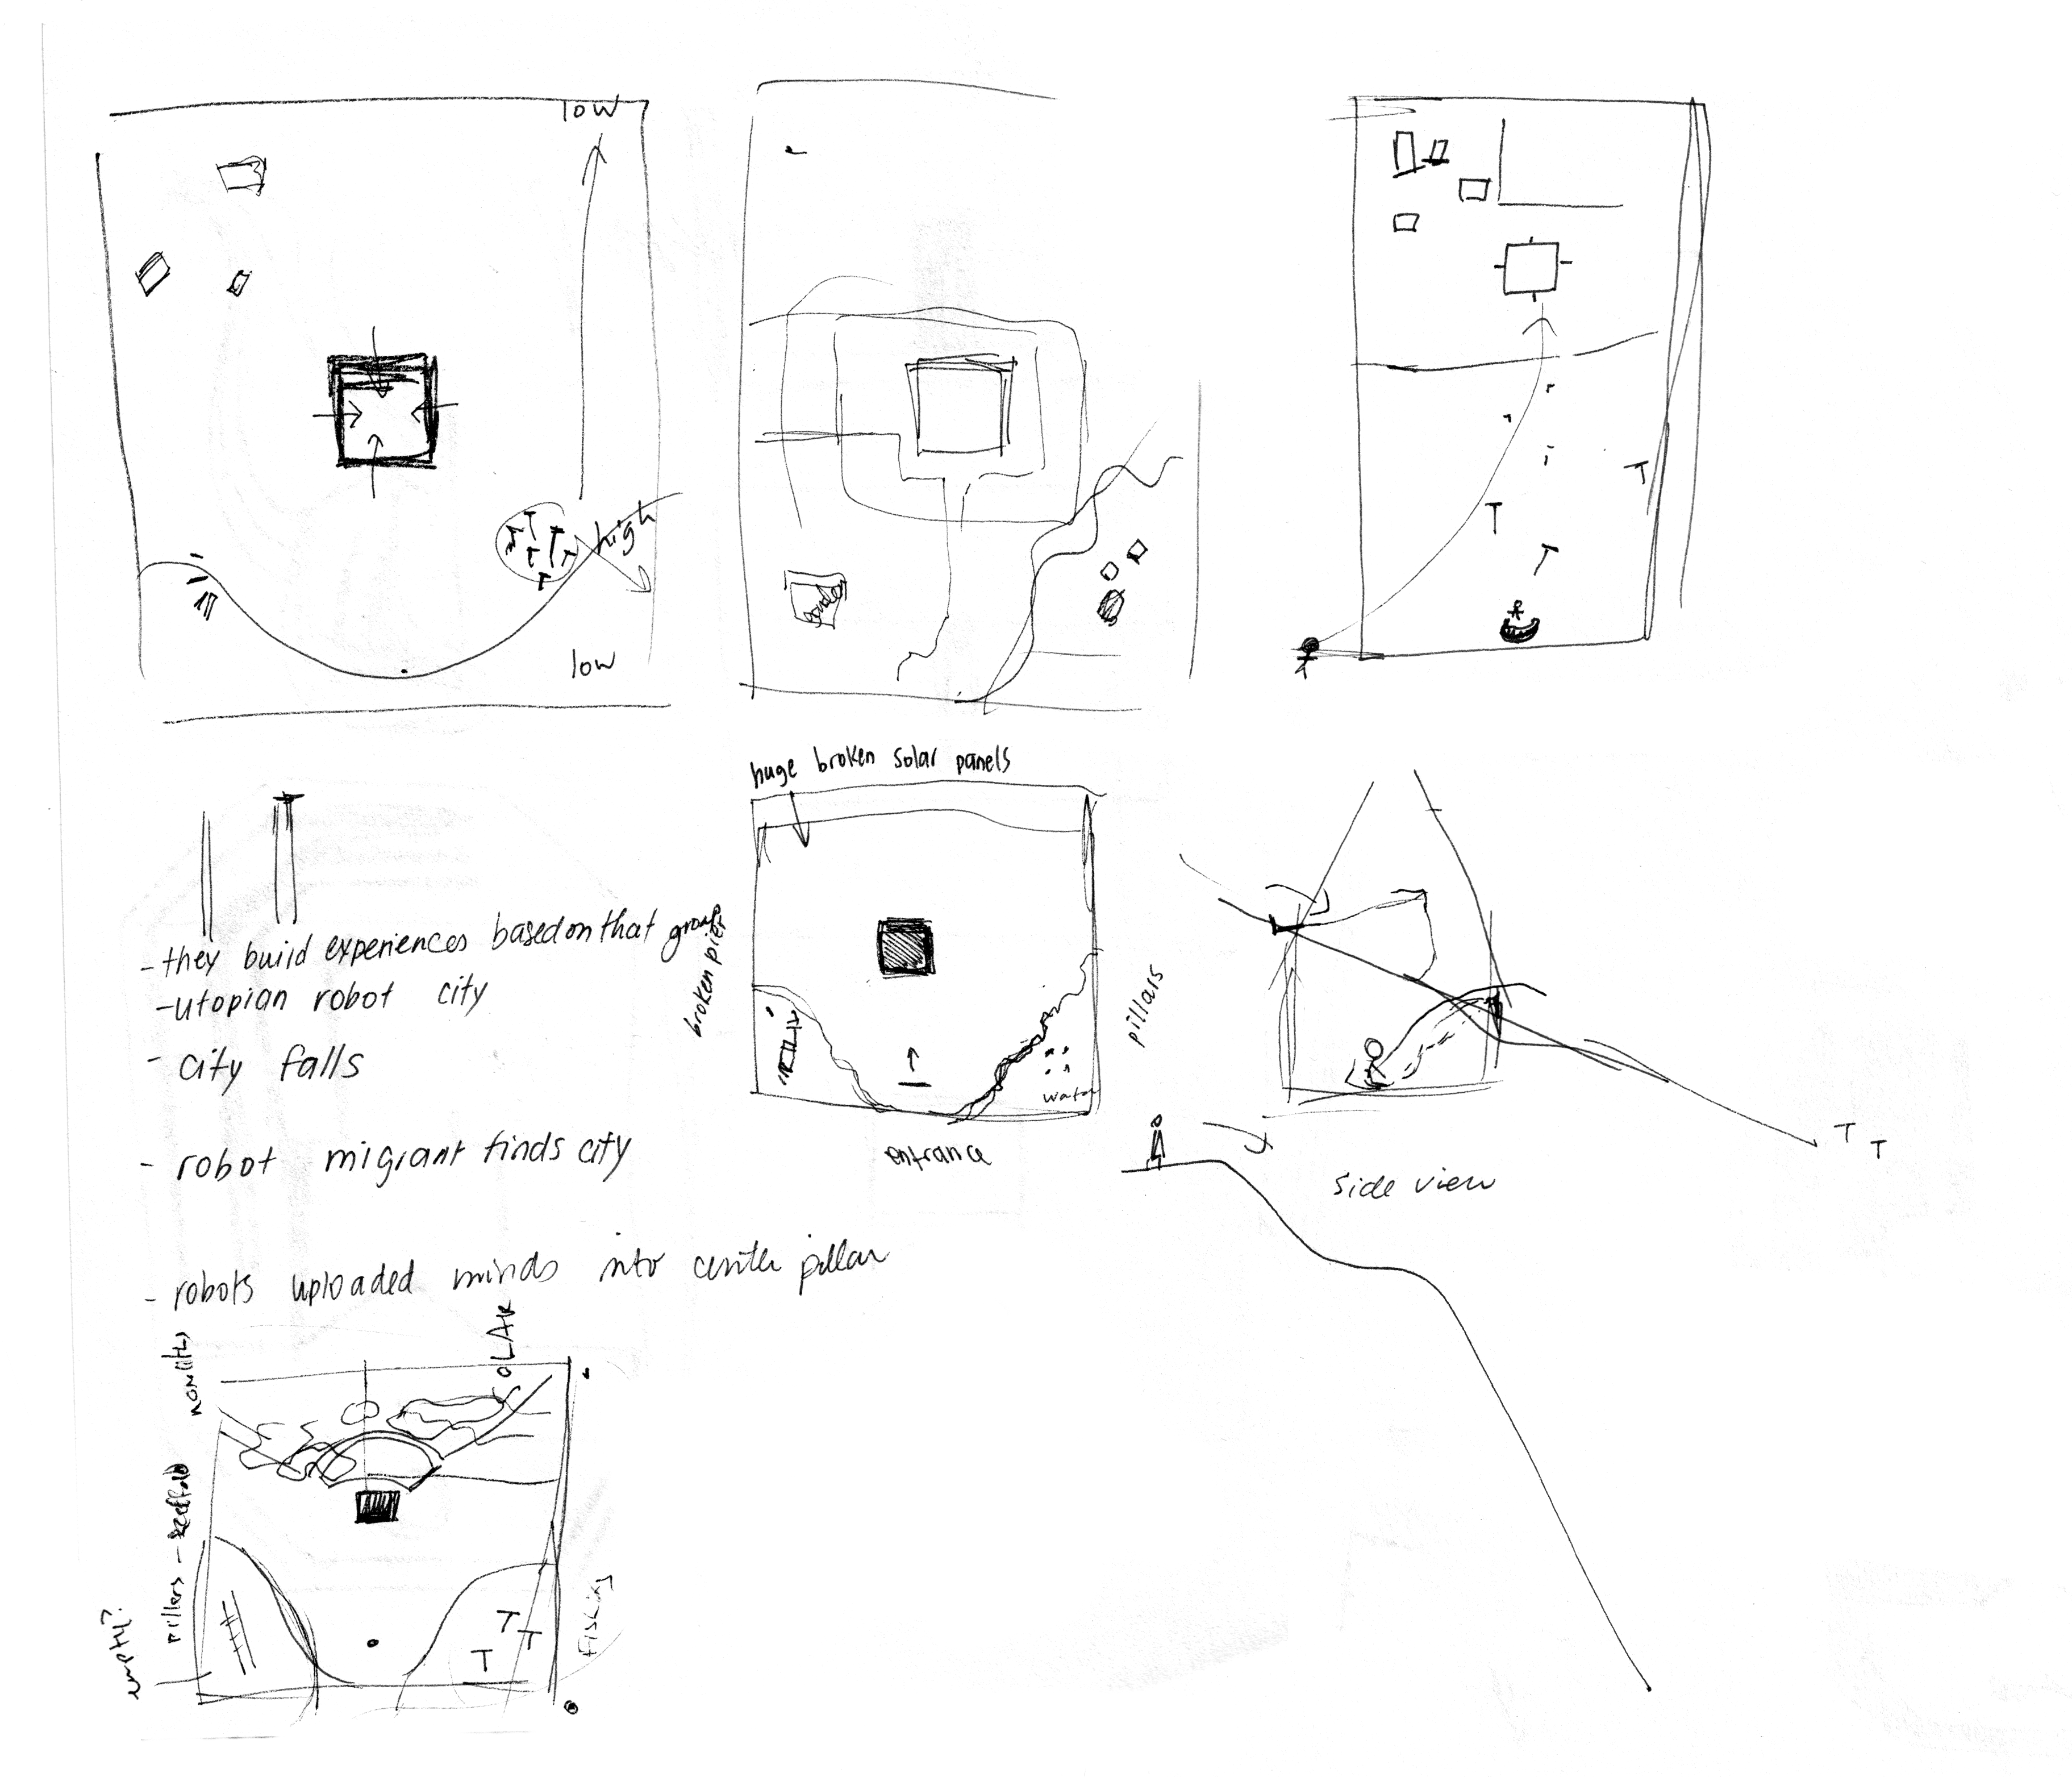 low
high
low
huge broken solar panels
broken pier
pillars
water
entrance
side view
- they build experiences based on that group
- utopian robot city
- city falls
- robot migrant finds city
- robots uploaded minds into center pillar
SOLAR
pillers - scaffold
empty?
Fishing
T T
T
T T